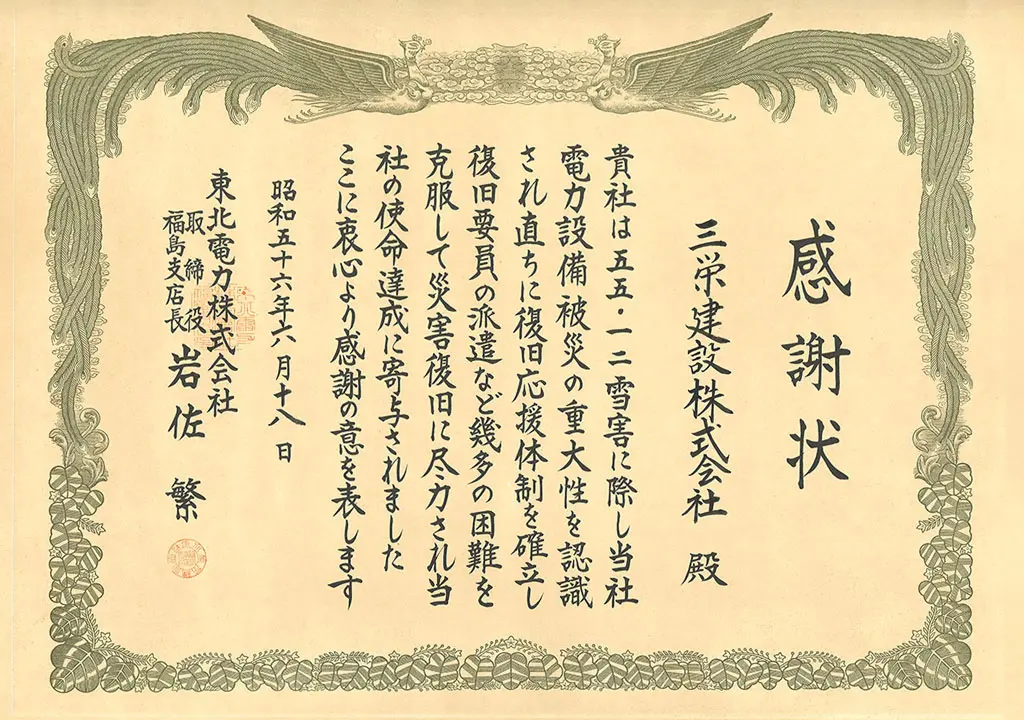 感謝状
三栄建設株式会社 殿
貴社は五五・一二雪害に際し当社
電力設備被災の重大性を認識
され直ちに復旧応援体制を確立し
復旧要員の派遣など幾多の困難を
克服して災害復旧に尽力され当
社の使命達成に寄与されました
ここに衷心より感謝の意を表します
昭和五十六年六月十八日
東北電力株式会社
取締役
福島支店長
岩佐 繁